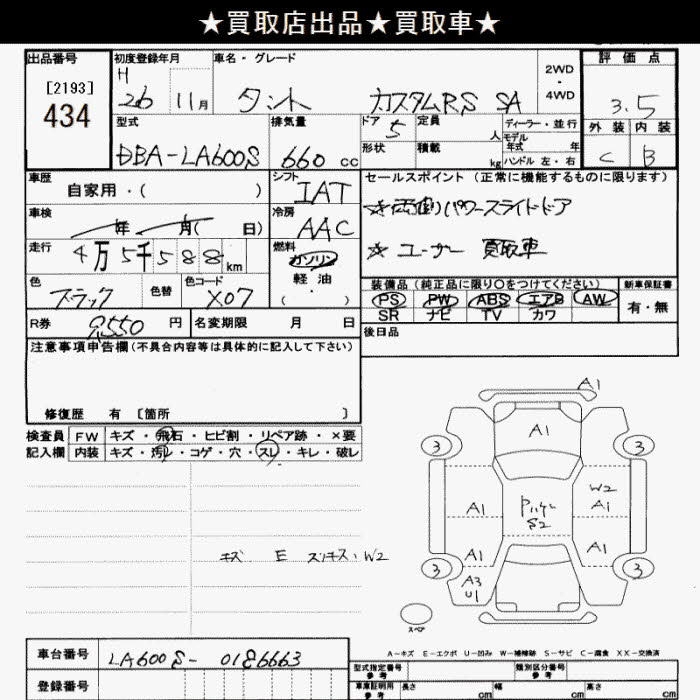 ★買取店出品★買取車★
出品番号 初度登録年月 車名・グレード 2WD・4WD 評価点
[2193] 434 H 26 11月 タント カスタムRS SA 3.5
型式 排気量 ドア 定員 人 ディーラー・並行 外装 内装
DBA-LA600S 660 cc 5 モデル年式 年 C B
形状 積載 kg ハンドル 左・右
車歴 シフト セールスポイント(正常に機能するものに限ります)
自家用・( ) IAT
☆両側パワースライドドア
車検 年 月( 日) 冷房 AAC
走行 4万5千588km 燃料 ガソリン 軽油・( )
☆ユーザー 買取車
色 色替 色コード
ブラック X07
装備品(純正品に限り○をつけてください) 新車保証書
PS PW ABS エアB AW 有・無
SR ナビ TV カワ
R券 8550円 名変期限 月 日 後日品
注意事項申告欄(不具合内容等は具体的に記入して下さい)
修復歴 有 [箇所 ]
検査員 FW キズ・飛石・ヒビ割・リペア跡・×要
記入欄 内装 キズ・汚レ・コゲ・穴・スレ・キレ・破レ
A1
A1
3 3
W2
A1 A1
S2
A1 A1
3 3
A3
U1
キズ E スリキズ・W2
スペア
A-キズ E-エクボ U-凹み W-補修跡 S-サビ C-腐食 XX-交換済
車台番号 LA600S-0186663
型式指定番号 参考 類別区分番号 参考
登録番号 車庫証明用 参考 長さ cm 幅 cm 高さ cm